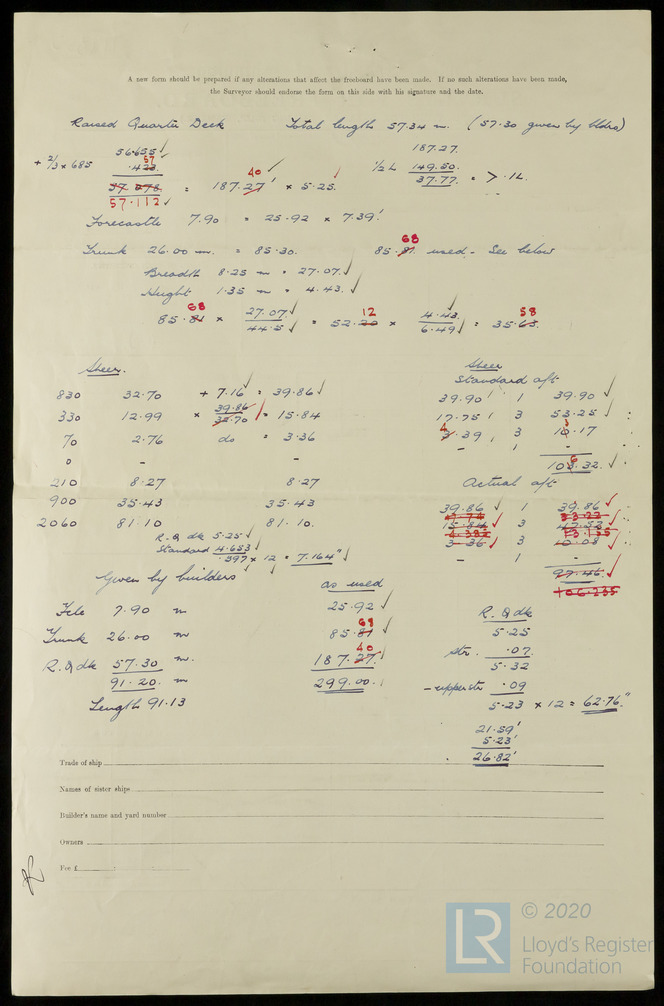 A new form should be prepared if any alterations that affect the freeboard have been made. If no such alterations have been made,
the Surveyor should endorse the form on this side with his signature and the date.
Raised Quarter Deck Total length 57.34 m. (57.30 given by bldrs)
56.655 187.27.
+ 2/3 × 685 .423 57 1/2 L 149.50.
37.77. = > .1L.
57.078 = 187.27' 40 × 5.25.
57.112
Forecastle 7.90 = 25.92 × 7.39'.
Trunk 26.00 m. = 85.30. 85.81 68 used - See below
Breadth 8.25 m = 27.07.
Height 1.35 m = 4.43.
85.81 68 × 27.07/44.5 = 52.20 12 × 4.43/6.49 = 35.63 58
Sheer. Sheer
Standard aft
830 32.70 + 7.16 = 39.86 39.90' 1 39.90
330 12.99 × 39.86/32.70 = 15.84 17.75' 3 53.25
70 2.76 do = 3.36 3.39 4 3 10.17 3
0 - - - 1 -
103.32. 6
210 8.27 8.27 Actual aft
900 35.43 35.43 39.86 1 39.86
2060 81.10 81.10. 15.84 3 47.53
R.Q dk 5.25 4.382 13.155
Standard 4.653 3.36 3 10.08
.597 × 12 = 7.164" - 1 -
97.46.
106.235
Given by builders as used
Fcle 7.90 m 25.92 R.Qdk
Trunk 26.00 m 85.81 68 5.25
R.Q.dk 57.30 m. 187.27. 40 str. .07.
91.20. m 299.00. 5.32
- upper str .09
Length 91.13 5.23 × 12 = 62.76."
21.59'
5.23'
26.82'
Trade of ship
Names of sister ships
Builder's name and yard number
Owners
Fee £
LR © 2020
Lloyd's Register
Foundation